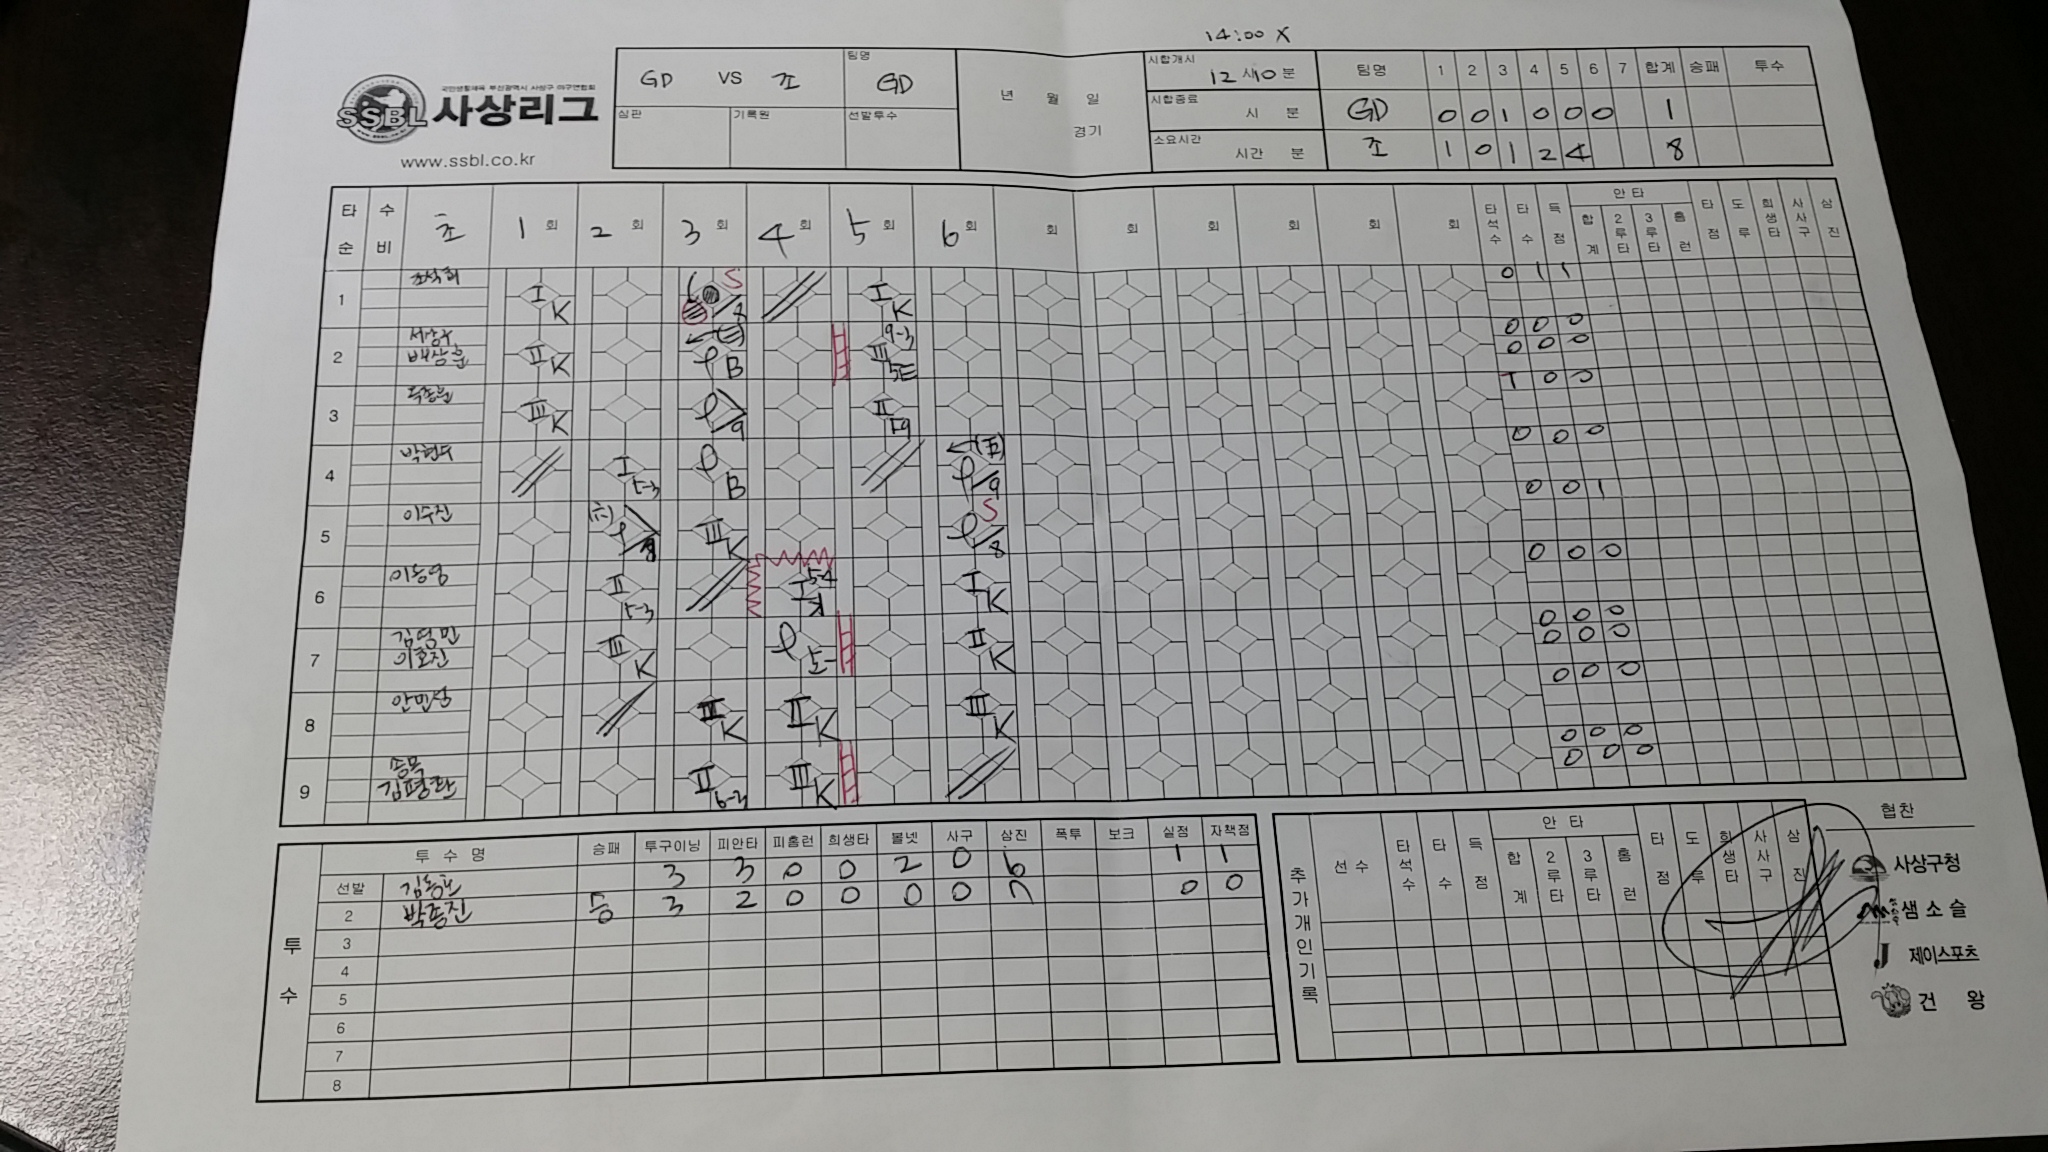 14:00 X
국민생활체육 부산광역시 사상구 야구연합회
SSBL 사상리그
www.ssbl.co.kr
GD VS 조
팀명 GD
심판 기록원 선발투수
년 월 일
경기
시합개시 12 시 10 분
시합종료 시 분
소요시간 시간 분
팀명 1 2 3 4 5 6 7 합계 승패 투수
GD 0 0 1 0 0 0 1
조 1 0 1 2 4 8
타순 수비 초 1 회 2 회 3 회 4 회 5 회 6 회 회 회 회 회 회 회 타석수 타수 득점 안타 합계 2루타 3루타 홈런 타점 도루 희생타 사사구 삼진
1 I K S 8 I K 0 1 1
2 II K B III 9-3 5E 0 0 0
0 0 0
3 III K 9 II F9 1 0 0
4 박현수 I 5-3 B 9 0 0 0
5 이수진 8 III K S 8 0 0 1
6 II 5-3 I 54 K I K 0 0 0
7 김명민 III K 5- II K 0 0 0
이호진 0 0 0
8 안민석 III K II K III K 0 0 0
9 II 6-3 III K 0 0 0
0 0 0
투수 투수명 승패 투구이닝 피안타 피홈런 희생타 볼넷 사구 삼진 폭투 보크 실점 자책점
선발 3 3 0 0 2 0 6 1 1
2 박종진 승 3 2 0 0 0 0 7 0 0
3
4
5
6
7
8
추가개인기록 선수 타석수 타수 득점 안타 합계 2루타 3루타 홈런 타점 도루 희생타 사사구 삼진
협찬
사상구청
샘소슬
제이스포츠
건왕